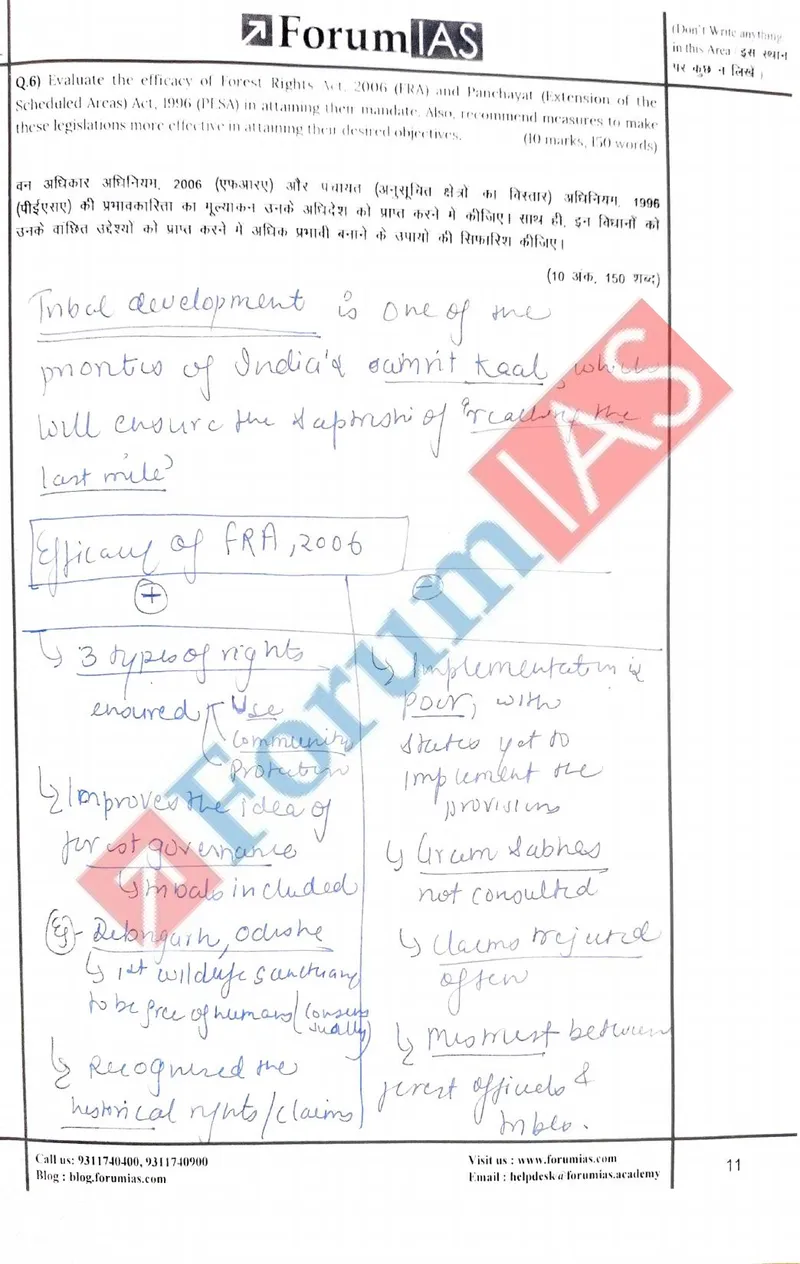 ForumIAS
(Don't Write anything
in this Area इस स्थान
पर कुछ न लिखें।
Q.6) Evaluate the efficacy of Forest Rights Act, 2006 (FRA) and Panchayat (Extension of the
Scheduled Areas) Act, 1996 (PESA) in attaining their mandate. Also, recommend measures to make
these legislations more effective in attaining their desired objectives. (10 marks, 150 words)
वन अधिकार अधिनियम, 2006 (एफआरए) और पंचायत (अनुसूचित क्षेत्रों का विस्तार) अधिनियम, 1996
(पीईएसए) की प्रभावकारिता का मूल्यांकन उनके अधिदेश को प्राप्त करने में कीजिए। साथ ही, इन विधानों को
उनके वांछित उद्देश्यों को प्राप्त करने में अधिक प्रभावी बनाने के उपायों की सिफारिश कीजिए।
(10 अंक, 150 शब्द)
Tribal development is one of the
priorities of India's amrit kaal, which
will ensure the saptrishi of "reaching the
last mile"
Efficacy of FRA, 2006
+
↳ 3 types of rights
ensured Use
Community
Protection
↳ Improves the idea of
forest governance
↳ tribals included
Eg - Debrigarh, Odisha
↳ 1st wildlife sanctuary
to be free of humans (consen
sually)
↳ Recognised the
historical rights/claims
-
↳ Implementation is
poor, with
states yet to
implement the
provisions
↳ Gram Sabhas
not consulted
↳ Claims rejected
often
↳ Mistrust between
forest officials &
tribes.
ForumIAS
Call us: 9311740400, 9311740900
Blog : blog.forumias.com
Visit us : www.forumias.com
Email : helpdesk@forumias.academy
11